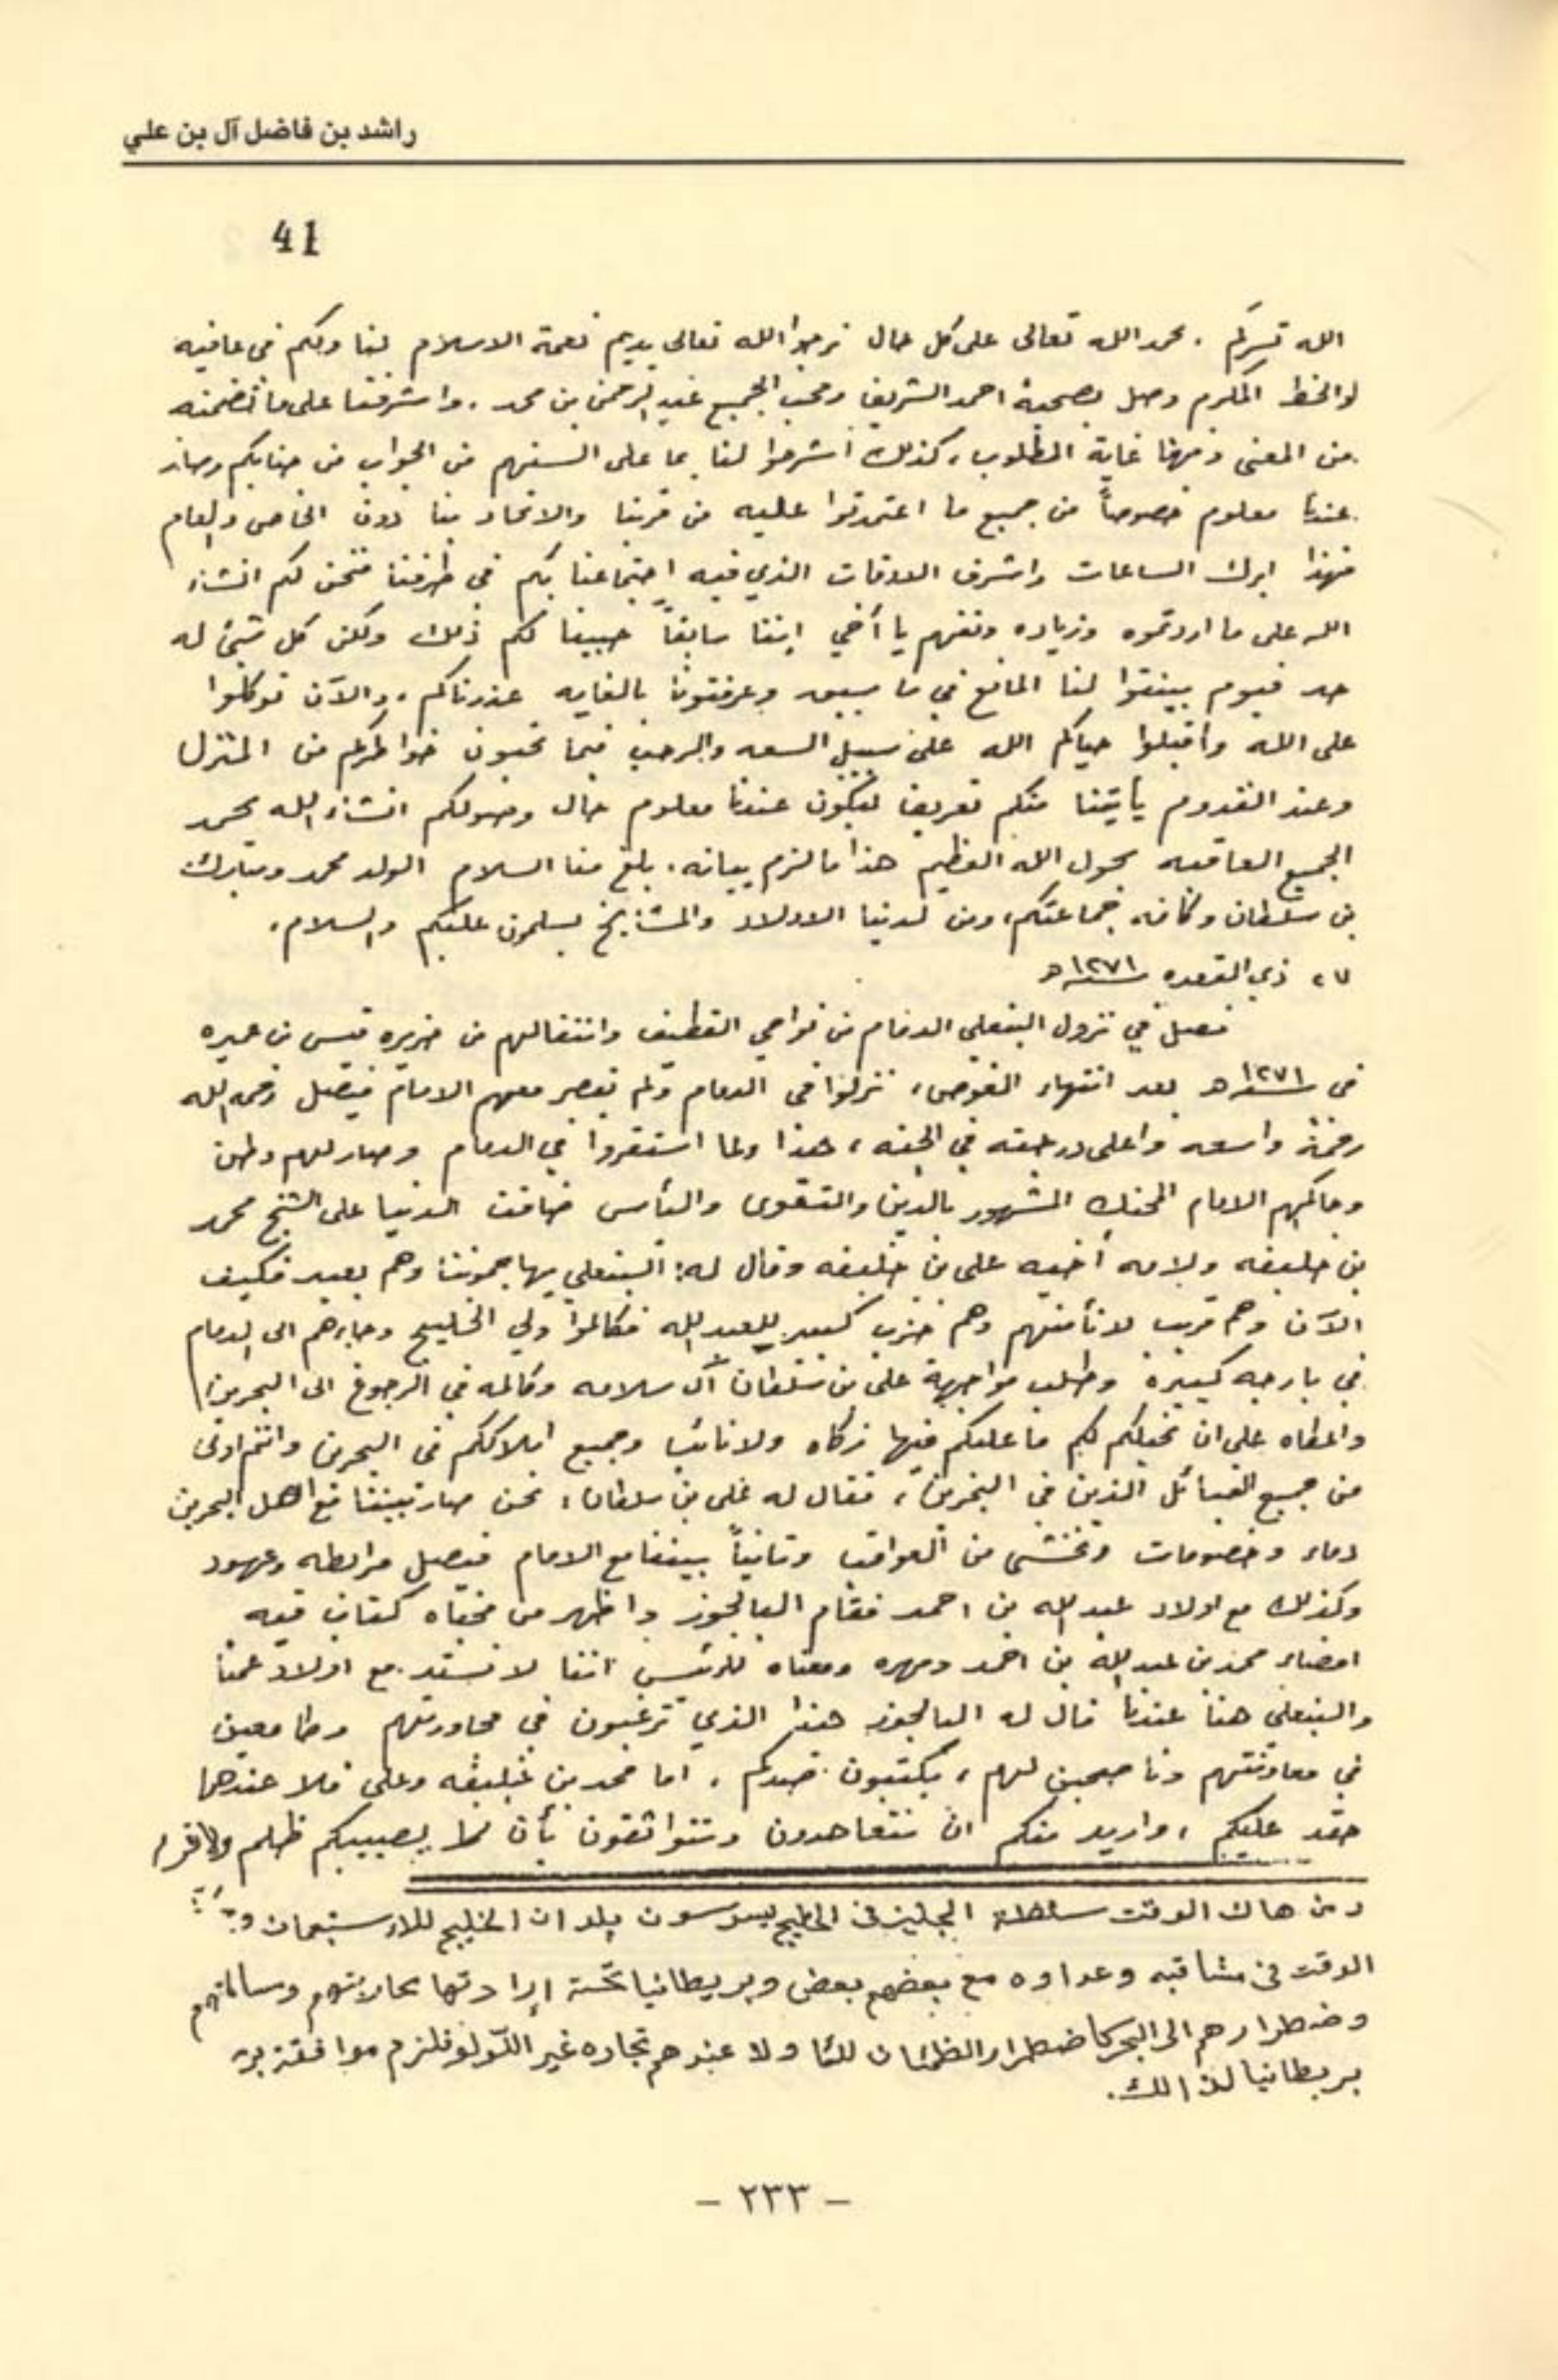 راشد بن فاضل آل بن علي
41
الله تسركم . بحمد الله تعالى على كل حال نرجوا الله تعالى يديم نعمة الاسلام لنا ولكم في عافيه
والخط المكرم وصل بصحبة احمد الشريف ومحب الجميع عبد الرحمن بن محمد . واشرفنا على ما تضمنه
من المعنى وفهمنا غاية المطلوب ، كذلك اشرحوا لنا بما على السنتهم من الجواب من جنابكم وصار
عندنا معلوم خصوصاً من جميع ما اعتمدتوا عليه من قربنا والاتحاد بنا دون الخاص والعام
فهذا ابرك الساعات واشرف الاوقات الذي فيه اجتماعنا بكم في طرفنا فنحن لكم انشاء
الله على ما اردتموه وزياده ونفهم يا أخي اننا سابقاً حبينا لكم ذلك ولكن كل شيئ له
حد فيوم بينتوا لنا المانع في ما سبق وعرفتونا بالغايه عذرناكم ، والآن توكلوا
على الله واقبلوا حياكم الله على سبيل السعه والرحب فيما تحبون خواطركم من المنزل
وعند القدوم يأتينا منكم تعريف ليكون عندنا معلوم حال وصولكم انشاء الله بحمد
الجميع العاقبه بحول الله العظيم هذا ما لزم بيانه . بلغ منا السلام الولد محمد ومبارك
بن سلطان وكافه جماعتكم ، ومن لدنيا الاولاد والمشايخ يسلمون عليكم والسلام .
٢٧ ذي القعده سنة ١٢٧١ هـ
فصل في نزول البنعلي الدمام من نواحي القطيف وانتقالهم من جزيره قيس بن عميره
في سنة ١٢٧١ هـ بعد انتهاء الغوص ، نزلوا في الدمام ولم يقصر معهم الامام فيصل رحمه الله
رحمة واسعه واعلى درجته في الجنه ، هذا ولما استقروا في الدمام وصار لهم وطن
وحاكمهم الامام المحنك المشهور بالدين والتقوى والبأس ضاقت الدنيا على الشيخ محمد
بن خليفه ولامه أخيه علي بن خليفه وقال له : البنعلي يهاجموننا وهم بعيد فكيف
الآن وهم قريب لا نأمنهم وهم حزب كبير للعبد الله فكالموا ولي الخليج وجاءهم الى الدمام
في بارجه كبيرة وطلب مواجهة علي بن سلطان آل سلامه وكالمه في الرجوع الى البحرين
واعطاه على ان نخيلكم لكم ما عليكم فيها زكاه ولا نائب وجميع املاككم في البحرين وانتم اولى
من جميع القبائل الذين في البحرين ، فقال له علي بن سلطان : نحن صار بيننا مع اهل البحرين
دماء وخصومات ونخشى من العواقب وثانياً بيننا مع الامام فيصل مرابطه وعهود
وكذلك مع اولاد عبد الله بن احمد فقام البالجوز واظهر من مخباه كتاب فيه
امضاء محمد بن عبد الله بن احمد ومهره ومعناه للرئيس اننا لا نستد مع اولاد عمنا
والبنعلي هنا عندنا قال له البالجوز هذا الذي ترغبون في محاورتهم وطامعين
في معاونتهم وناصحين لهم ، يكتبون ضدكم . اما محمد بن خليفه وعلي فلا عندهما
حقد عليكم ، واريد منكم ان تتعاهدون وتتواثقون بأن لا يصيبكم ظلم ولا
ومن هاك الوقت سلطة انجليز في الخليج يسوسون بلدان الخليج للاستيمان
الوقت في مشاقبه وعداوه مع بعضهم بعض وبريطانيا تحت إرادتها
وضطرارهم الى البحر كاضطرار الظمئان للما ولا عندهم تجاره غير اللؤلؤ فلزم موافقة
بريطانيا لذالك .
- ٢٣٣ -